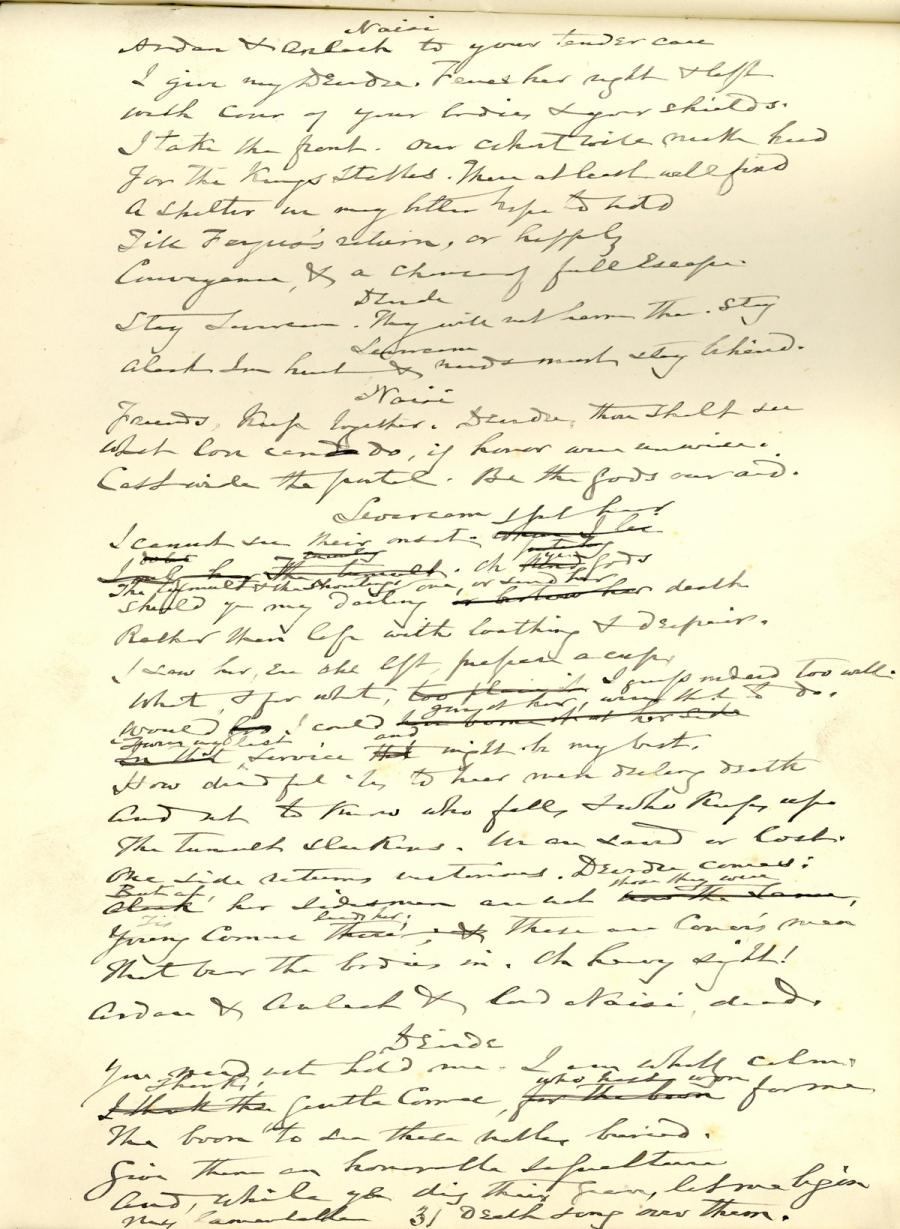 Naisi
Ardan & Ainlach to your tender care
I give my Deirdre. Fence her right & left
with cover of your bodies & your shields.
I take the front. Our chariot wile
For the Kings Stables. There at least well find
A shelter we may better hope to hold
Till Fergus's return, or happly
Conveyance, & a chance of full Escape.
Deirdre
Stay Levarcam. They will not harm thee. Stay
Levarcam
Alack Im hurt & needs must stay behind.
Naisi
Friends, Keep together. Deirdre, thou shalt see
What love can do, if honor were unwise.
Cast wide the portal. Be the Gods our aid.
Levarcam
I cannot see their onset.
The tumult & the shoutings Oh Gods
Should ye my darling one, or send her death
Rather than life with loathing & despair.
I saw her, ere she left, prepare a cup,
What, & for what, I guess indeed too well.
Would I could her, were that to do,
service and might be my best.
How dreadful 'tis to hear men dealing death
And not to Know who falls & who Keeps up
The tumult slackens. We are saved or lost.
One side returns victorious. Deirdre comes:
But ah, her sidesmen are not those they were
'Tis Young Cormac leads her; these are Conor's men
That bear the bodies in. Oh heavy sight!
Ardan & Ainlach & lord Naisi, dead.
Deirdre
You need not hold me. I am wholly calm.
Thanks, Gentle Cormac, who hast won for me
The boon to see these nobles buried.
Give them an honorable sepulture
And, while ye dig their grave, let me begin
My lamentable Death song over them.
31